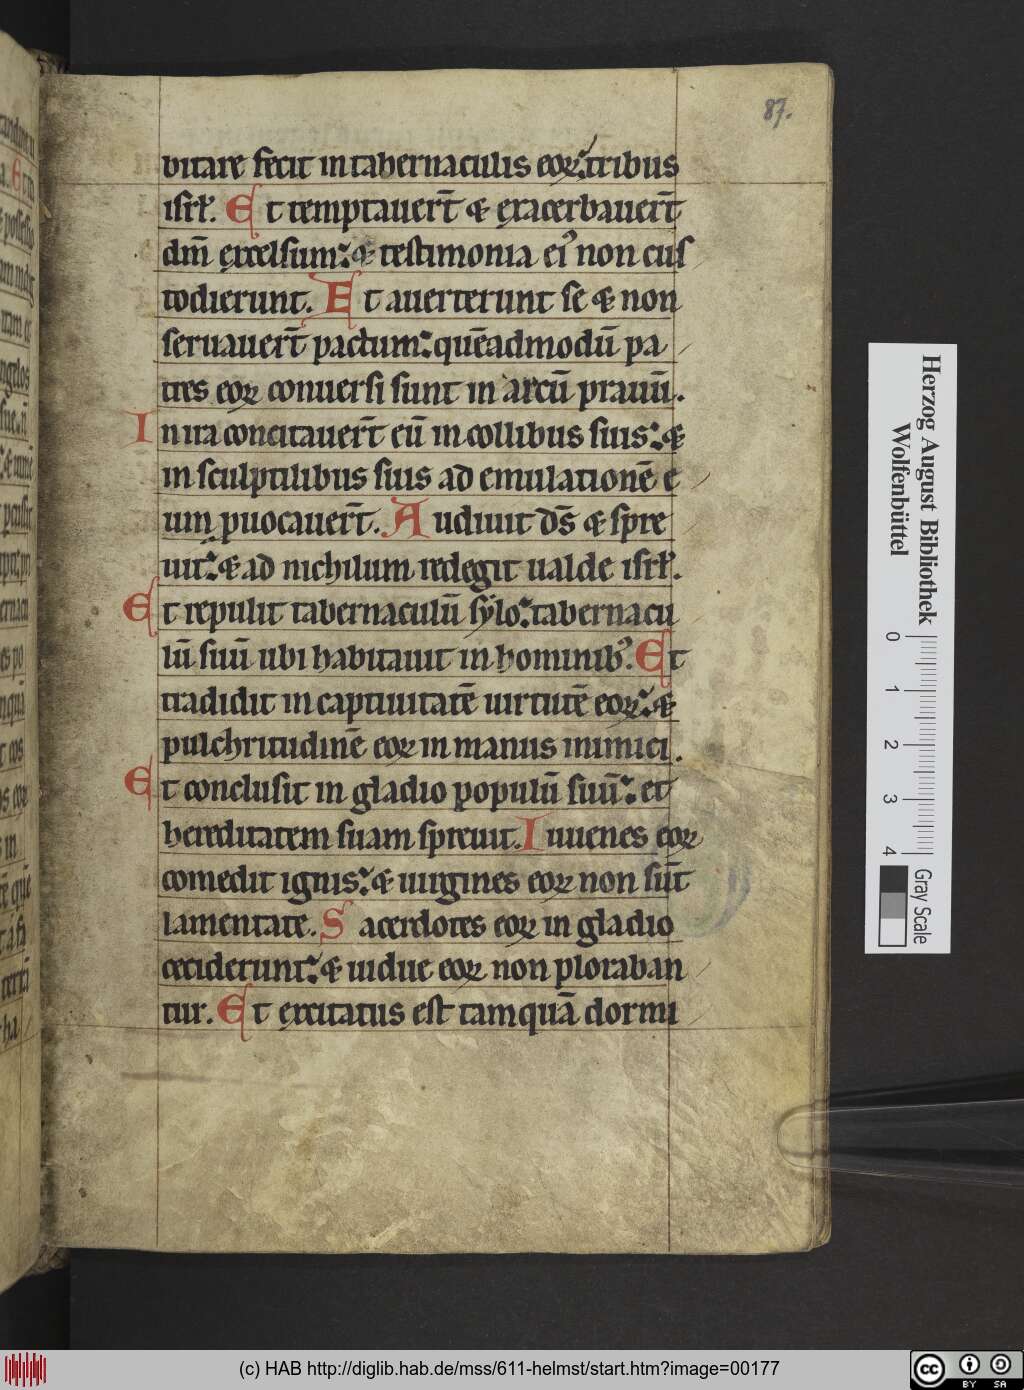 87.
bitare fecit in tabernaculis eoꝝ tribus
isrł. Et temptauer̄t & exacerbauer̄t
dm̄ excelsum: & testimonia eiꝰ non cus
todierunt. Et auerterunt se & non
seruauer̄t pactum: quēadmodū pa
tres eoꝝ conuersi sunt in arcū prauū.
In ira concitauer̄t eū in collibus suis: &
in sculptilibus suis ad emulationē e
um ꝓuocauer̄t. Audiuit ds̄ & spre
uit: & ad nichilum redegit ualde isrł.
Et repulit tabernaculū sẏlo: tabernacu
lū suū ubi habitauit in hominibꝰ. Et
tradidit in captiuitatē uirtutē eoꝝ: &
pulchritudinē eoꝝ in manus inimici.
Et conclusit in gladio populū suū: et
hereditatem suam spreuit. Iuuenes eoꝝ
comedit ignis: & uirgines eoꝝ non sūt
lamentate. Sacerdotes eoꝝ in gladio
ceciderunt: & uidue eoꝝ non ploraban
tur. Et excitatus est tamquā dormi
Herzog August Bibliothek
Wolfenbüttel
0 1 2 3 4
Gray Scale
(c) HAB http://diglib.hab.de/mss/611-helmst/start.htm?image=00177
cc BY SA